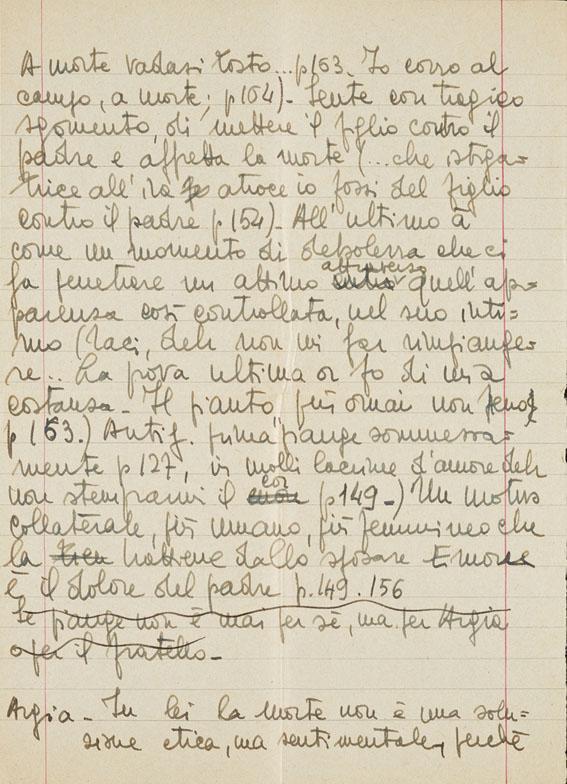 A morte vadasi tosto... p 153. Io corro al
campo, a morte; p 154)- Sente con tragico
sgomento, di mettere il figlio contro il
padre e affretta la morte (...che istiga=
trice all'ira atroce io fossi del figlio
contro il padre p 154)- All'ultimo à
come un momento di debolezza che ci
fa penetrare un attimo attraverso quell'ap=
parenza così controllata, nel suo inti=
mo (Taci, deh non mi far rimpiange=
re... La prova ultima or fo di mia
costanza- Il pianto più omai non freno
p 153.) Antig. prima piange sommessa=
mente p 127, in molli lacrime d'amore deh
non stemprarmi il cor (p 149-) Un motivo
collaterale, più umano, più femmineo che
la trattiene dallo sposare Emone
è il dolore del padre p. 149. 156
Se piange non è mai per sè, ma per Argia
o per il fratello-
Argia- In lei la morte non è una solu=
zione etica, ma sentimentale, perchè